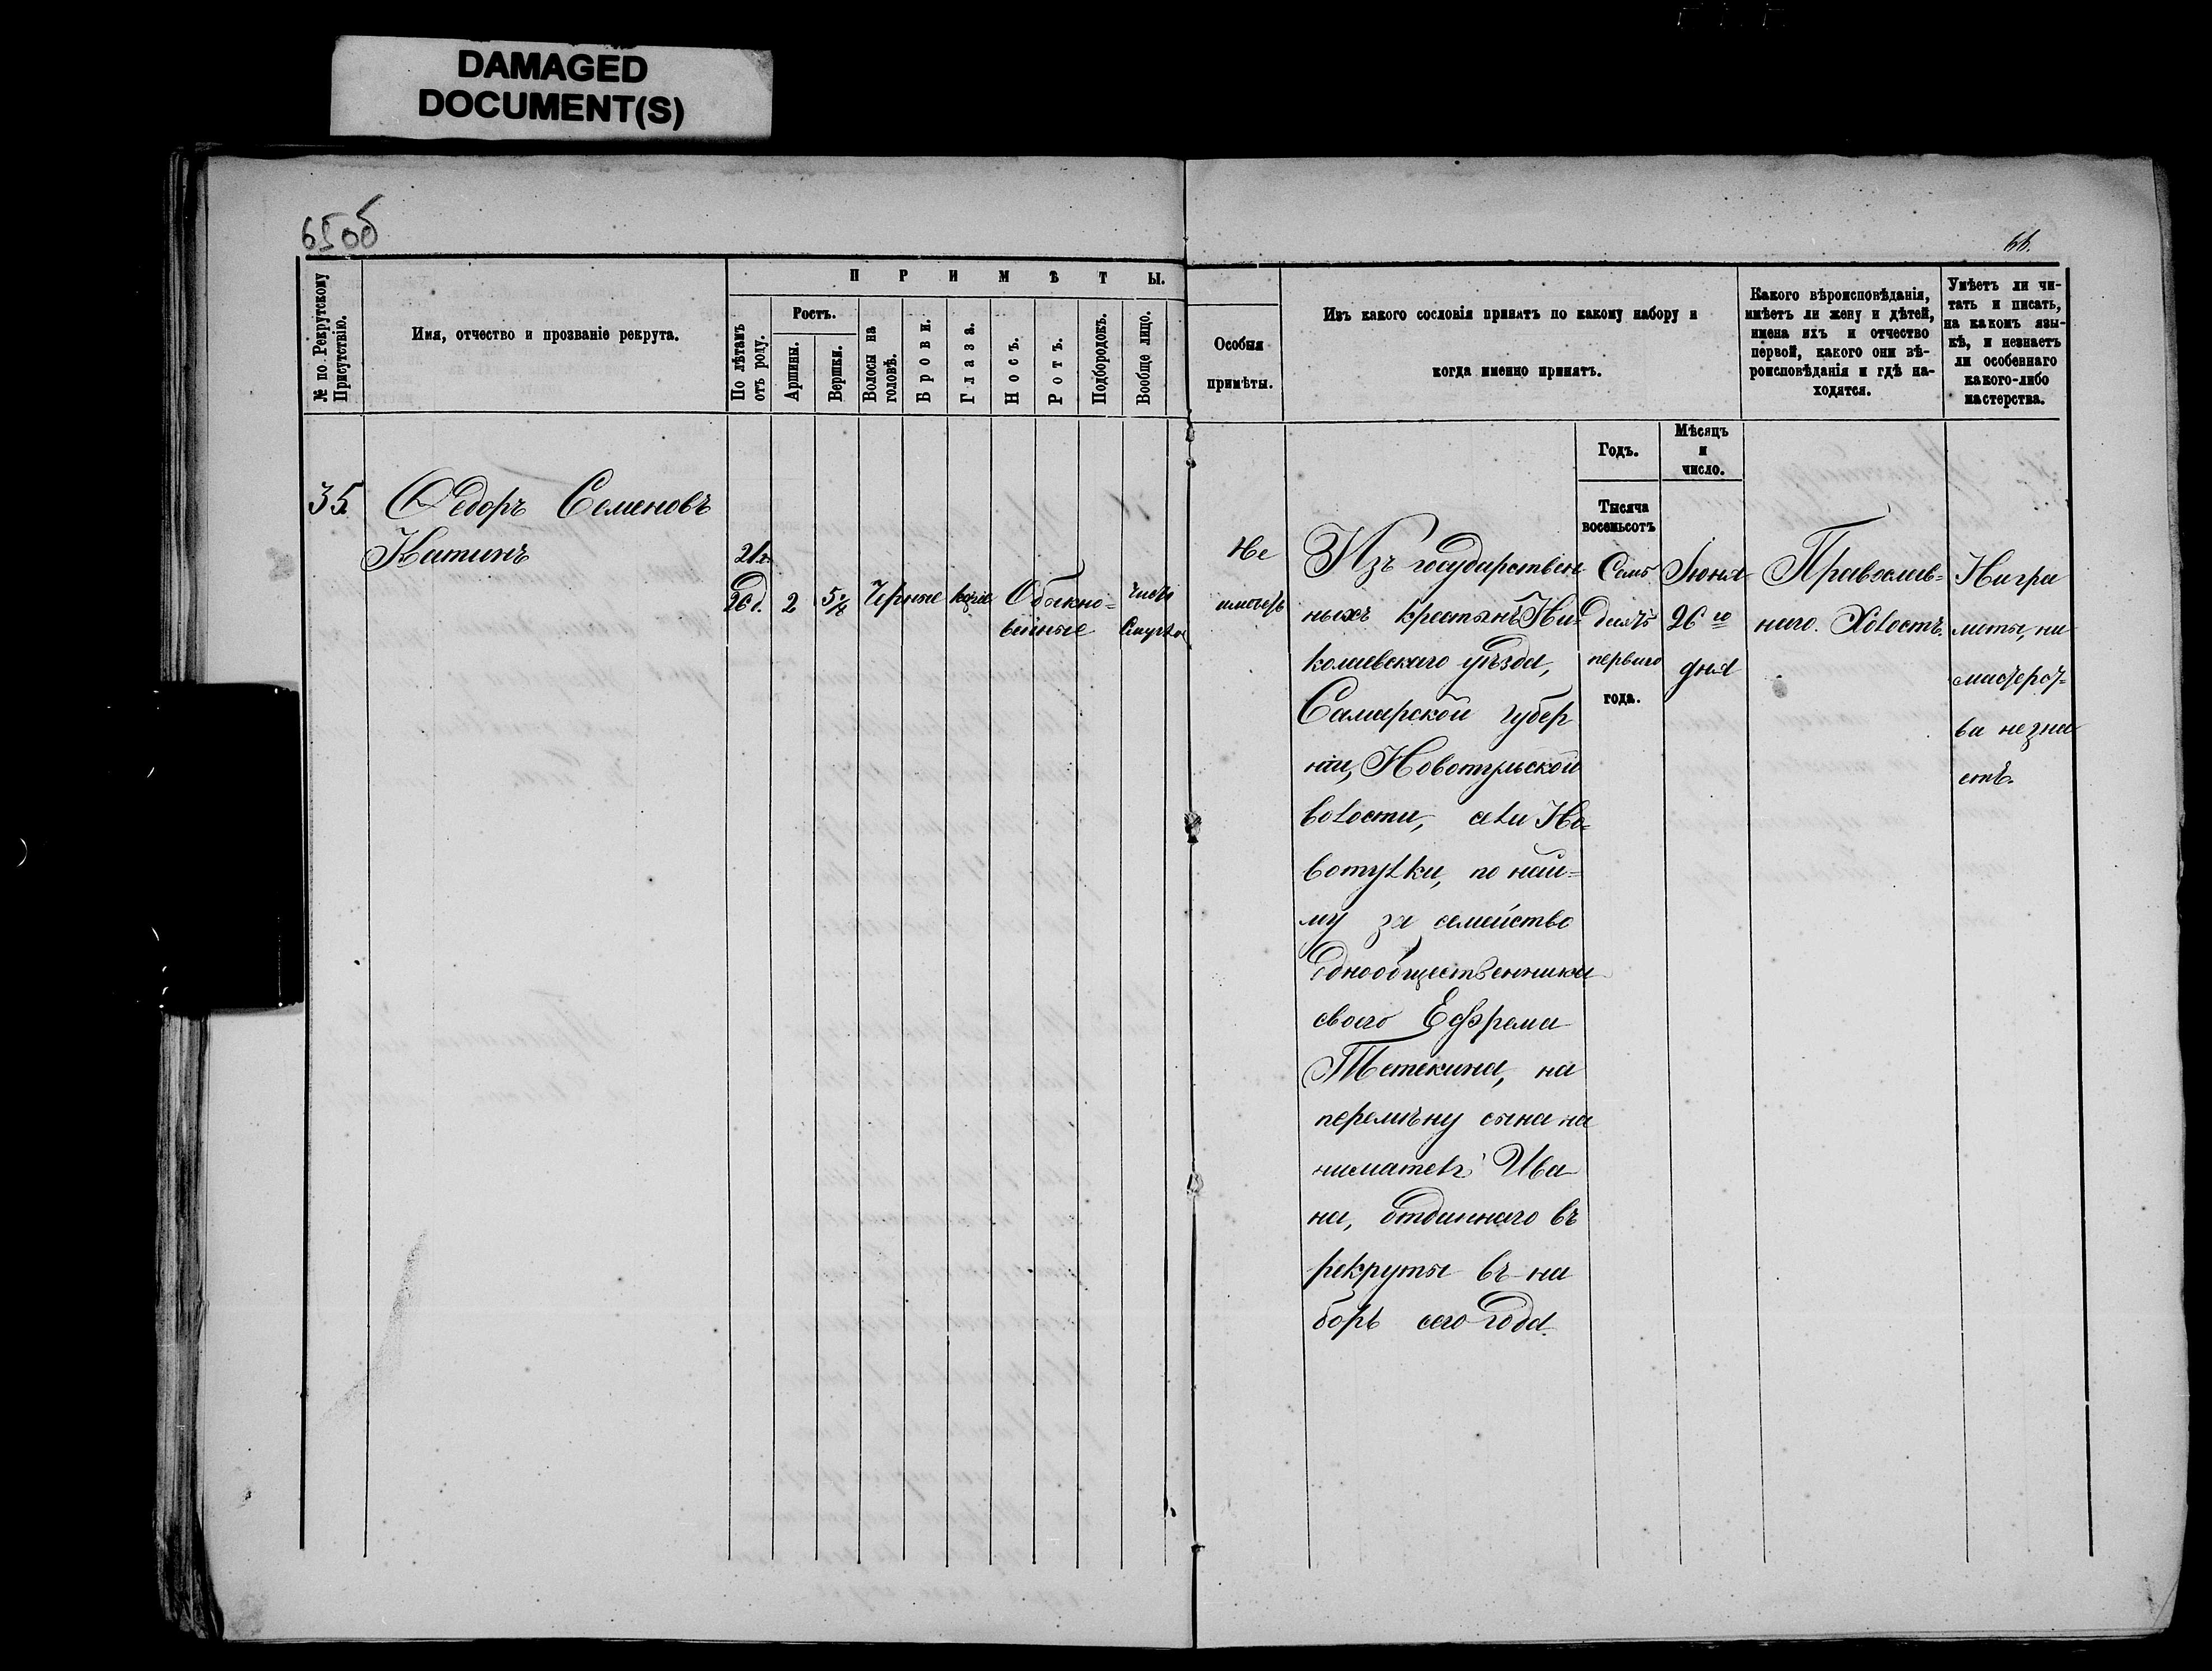 DAMAGED
DOCUMENT(S)
65об
66.
№ по Рекрутскому Присутствію.
Имя, отчество и прозваніе рекрута.
ПРИМѢТЫ.
По лѣтамъ отъ роду.
Ростъ.
Аршины.
Вершки.
Волосы на головѣ.
Брови.
Глаза.
Носъ.
Ротъ.
Подбородокъ.
Вообще лицо.
Особыя
примѣты.
Изъ какого сословія принятъ по какому набору и
когда именно принятъ.
Какого вѣроисповѣданія,
имѣетъ ли жену и дѣтей,
имена ихъ и отчество
первой, какого они вѣ-
роисповѣданія и гдѣ на-
ходятся.
Умѣетъ ли чи-
тать и писать,
на какомъ язы-
кѣ, и незнаетъ
ли особеннаго
какого-либо
мастерства.
Годъ.
Мѣсяцъ
и
число.
Тысяча
восемьсотъ
35
Ѳедоръ Семеновъ
Катинъ
21 г.
26 д.
2
5 4/8
Черные
каріе
Обыкно=
венные
Чисто
Смугл
Не
имѣетъ
Изъ государствен
ныхъ крестьянъ Ни=
колаевскаго уѣзда,
Самарской губер
ніи, Новотульской
волости, села Но=
вотулки, по най=
му за семейство
Однообщественника
своего Ефрема
Тетекина, на
перемѣну сына на
нимателя Ива
на, отданнаго въ
рекруты въ на
боръ сего года.
Семь
десятъ
перваго
года.
Іюня
26 го
дня
Православ=
наго. Холостъ.
Ни гра
моты, ни
мастерст=
ва незна
етъ.